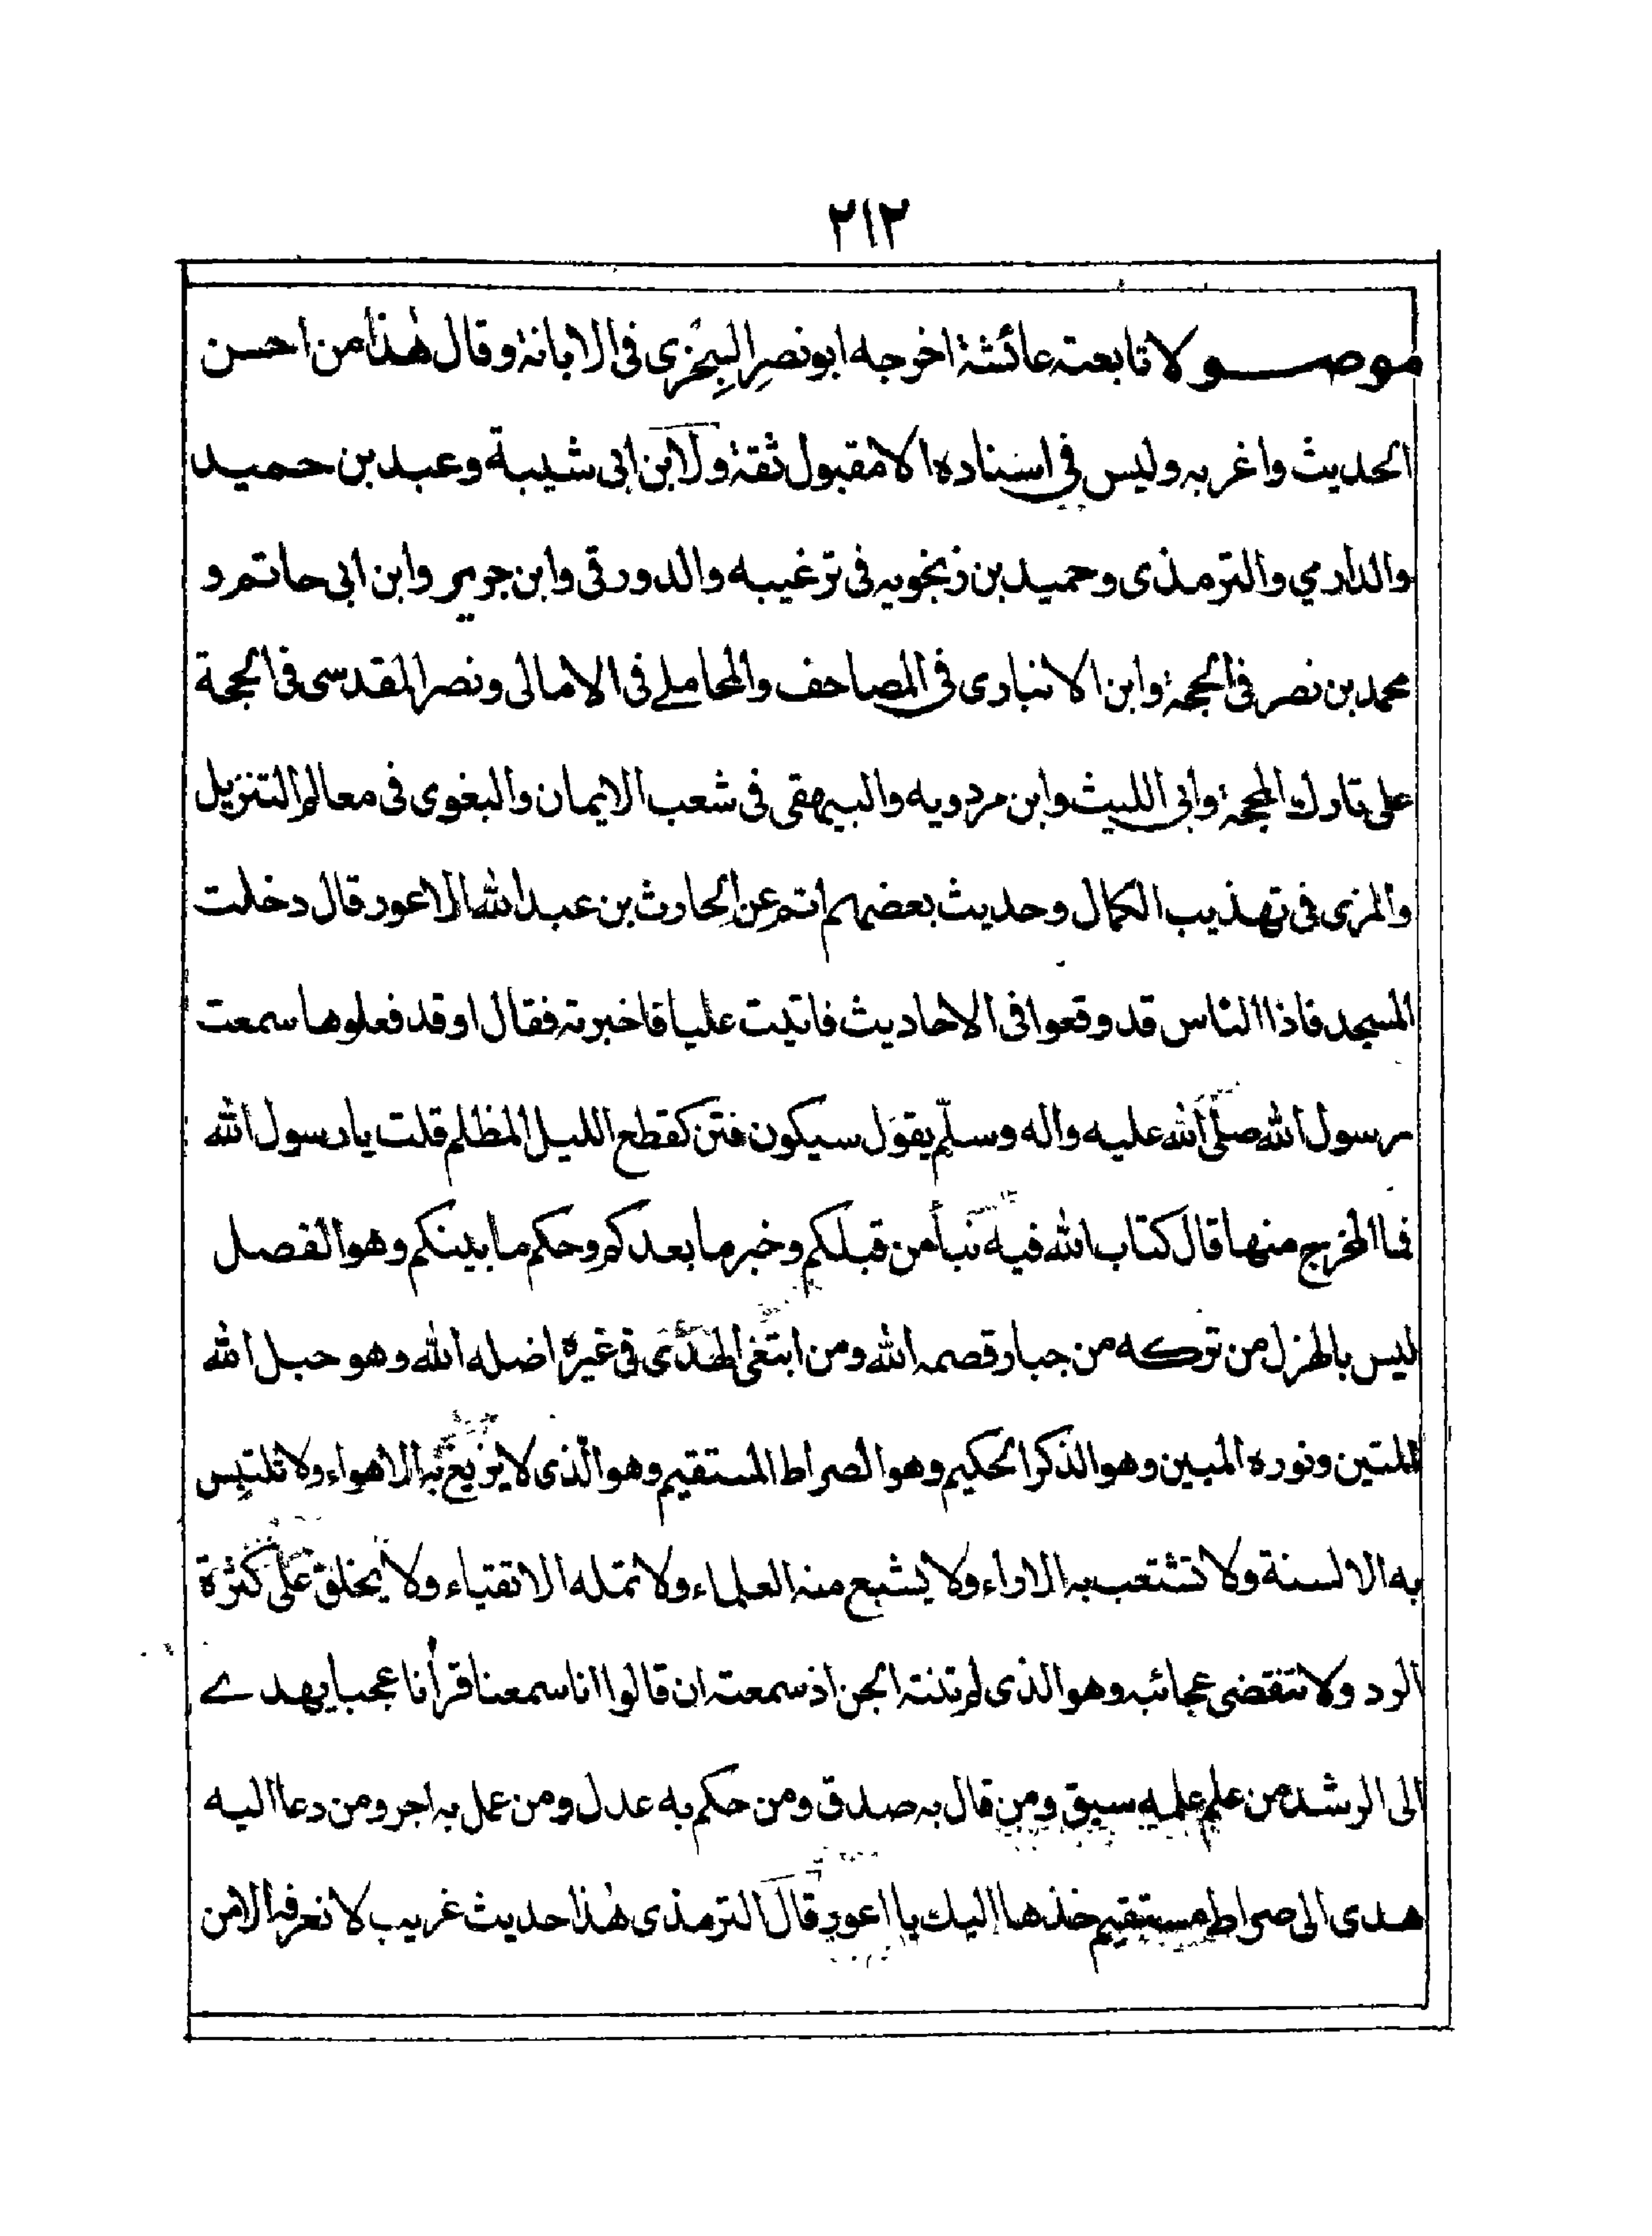 ٢١٢
موصولا تابعته عائشة اخرجه ابونصر السجزى فى الابانة وقال هٰذا من احسن
الحديث واغربه وليس فى اسناده الا مقبول ثقة ولابن ابى شيبة وعبد بن حميد
والدارمي والترمذى وحميد بن زنجويه فى ترغيبه والدورقى وابن جرير وابن ابى حاتم و
محمد بن نصر فى الحجة وابن الانبارى فى المصاحف والمحاملے فى الامالى ونصر المقدسى فى الحجة
على تارك المحجة وابى الليث وابن مردويه والبيهقى فى شعب الايمان والبغوى فى معالم التنزيل
والمزى فى تهذيب الكمال وحديث بعضهم اتم عن الحارث بن عبد الله الاعور قال دخلت
المسجد فاذا الناس قد وقعوا فى الاحاديث فاتيت عليا فاخبرته فقال اوقد فعلوها سمعت
رسول الله صلّى الله عليه واله وسلّم يقول سيكون فتن كقطع الليل المظلم قلت يا رسول الله
فما المخرج منها قال كتاب الله فيه نبأ من قبلكم وخبر ما بعدكم وحكم ما بينكم وهو الفصل
ليس بالهزل من تركه من جبار قصمه الله ومن ابتغى الهدى فى غيره اضله الله وهو حبل الله
المتين ونوره المبين وهو الذكر الحكيم وهو الصراط المستقيم وهو الّذى لا يزيغ به الاهواء ولا تلتبس
به الالسنة ولا تشتعب به الاراء ولا يشبع منه العلماء ولا تمله الاتقياء ولا يخلق على كثرة
الرد ولا تنقضى عجائبه وهو الذى لم تنته الجن اذ سمعته ان قالوا انا سمعنا قرأنا عجبا يهدے
الى الرشد من علم علمه سبق ومن قال به صدق ومن حكم به عدل ومن عمل به اجر ومن دعا اليه
هدى الى صراط مستقيم خذها اليك يا اعور قال الترمذى هٰذا حديث غريب لا نعرفه الا من